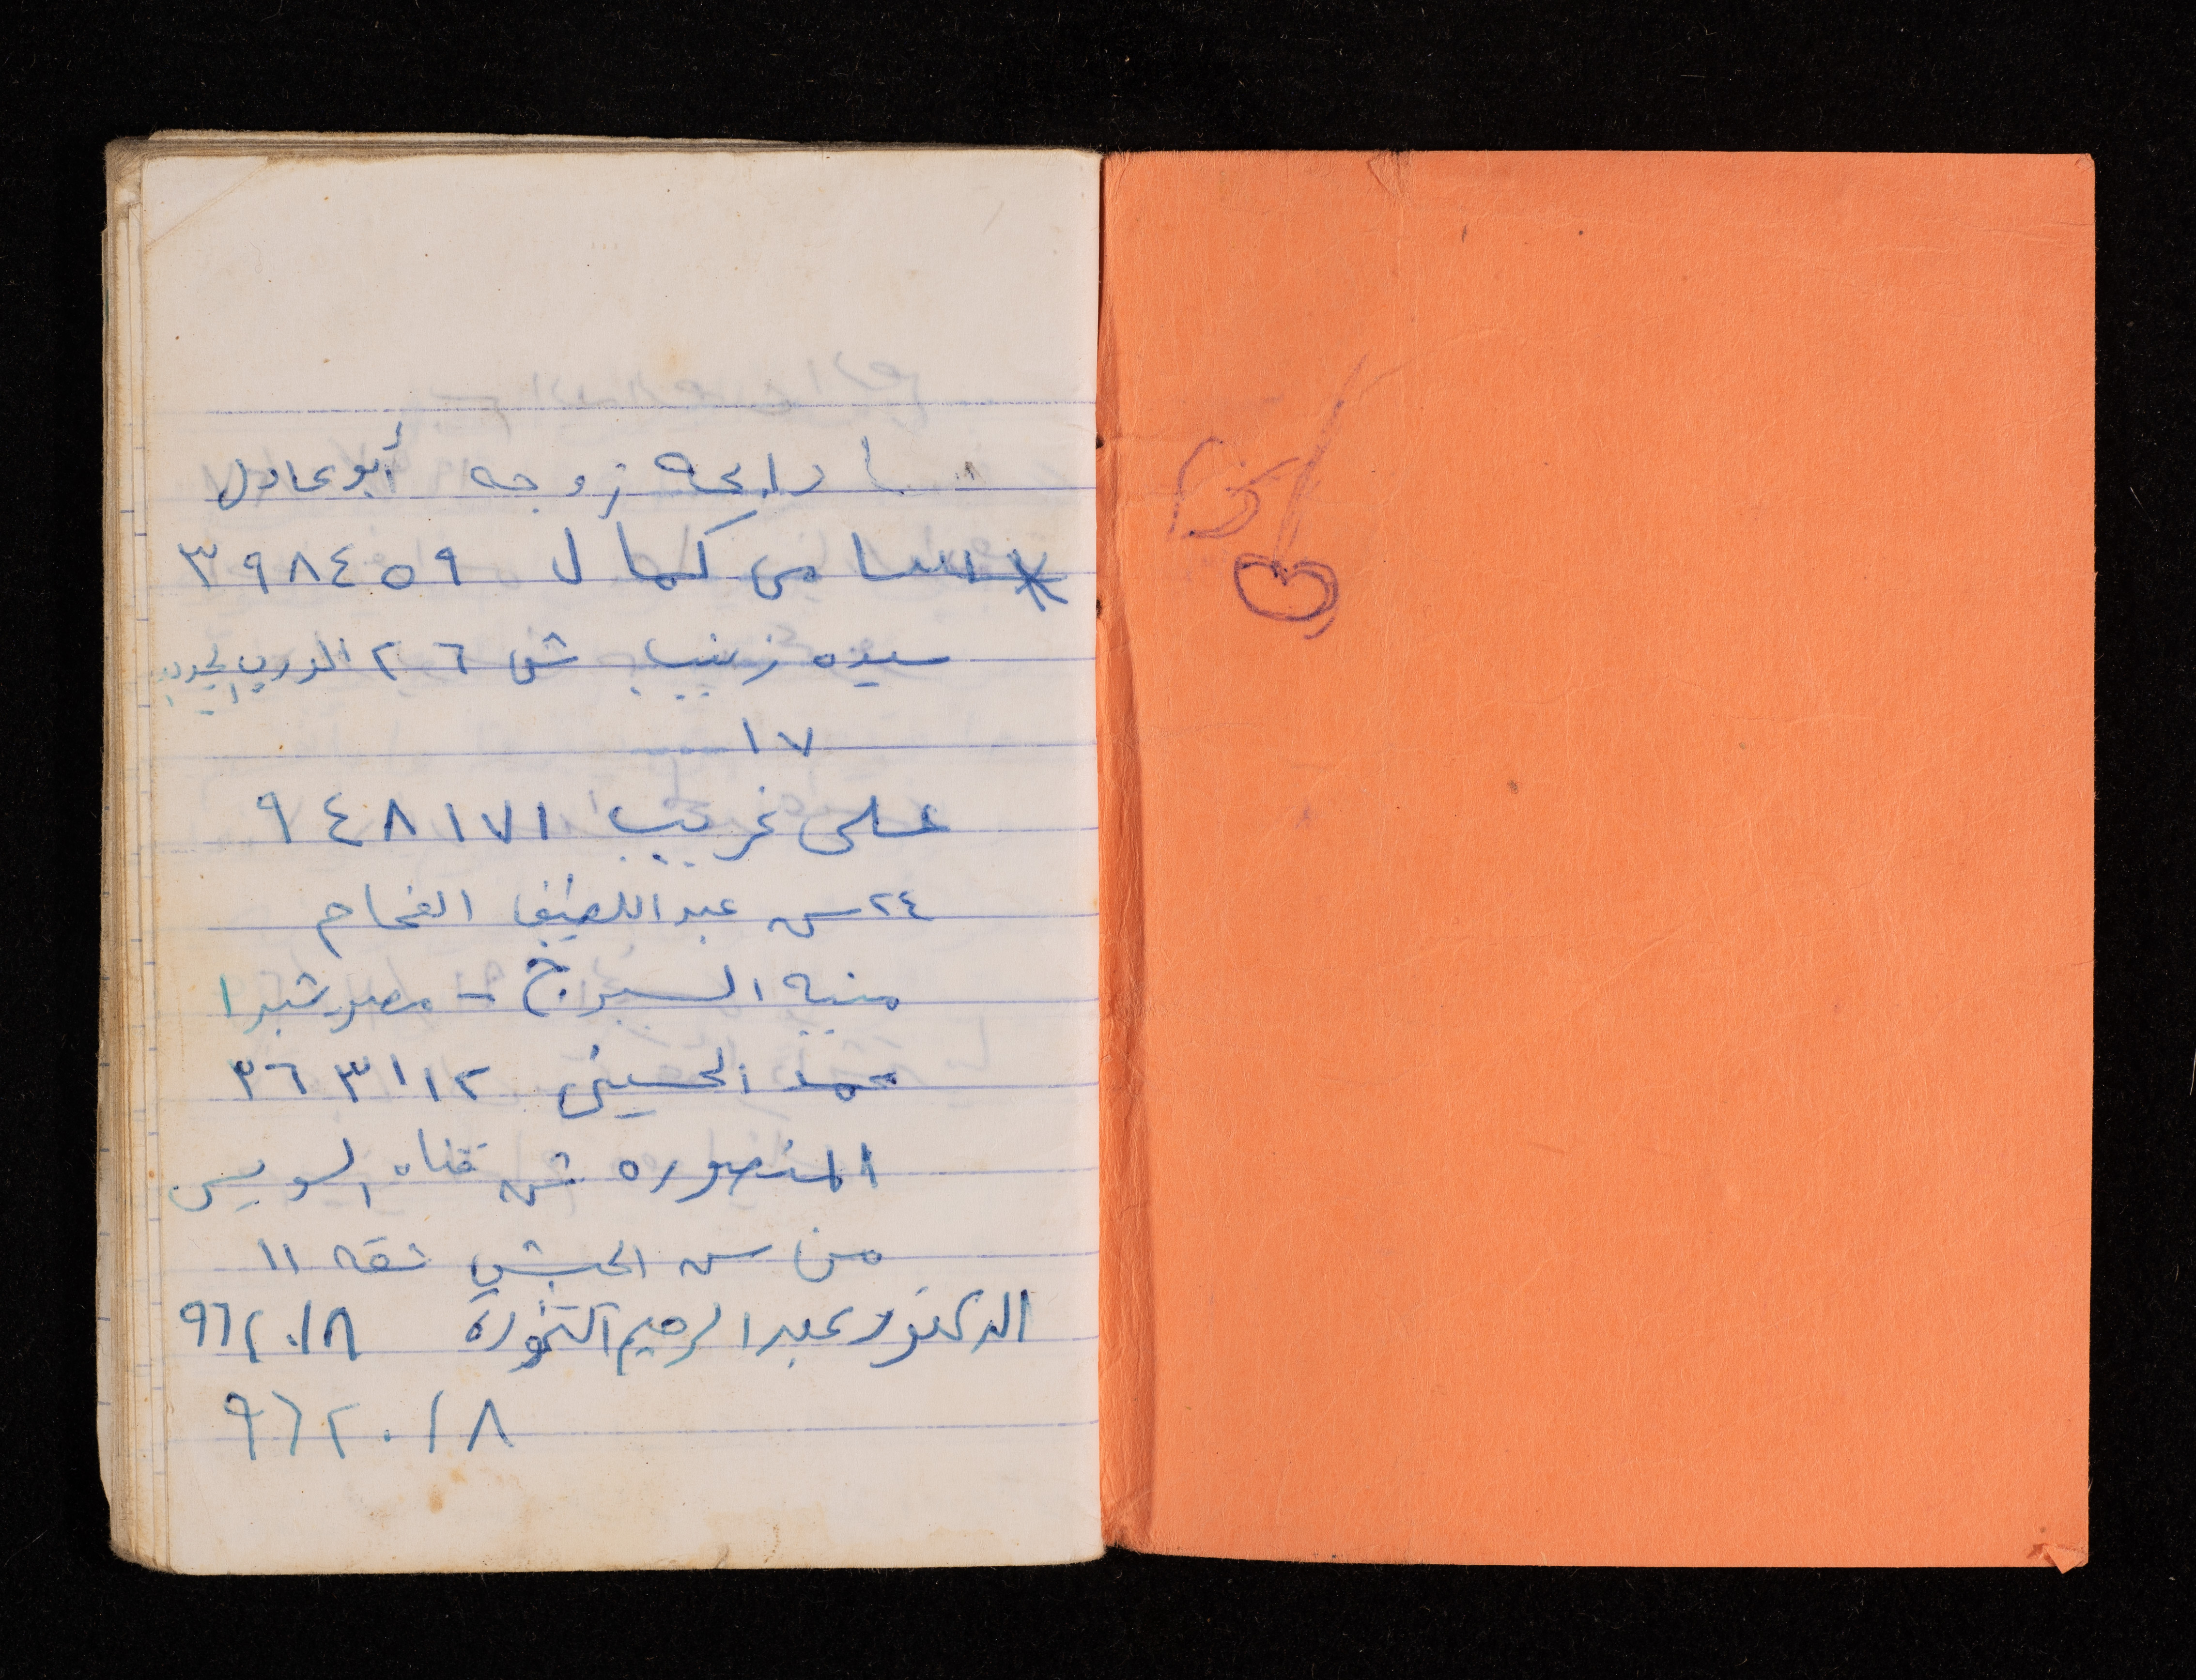 رابحه زوجه أبو عادل
* سامى كمال ٣٩٨٤٥٩
سيده زينب ش ٢٦
١٧
على غريب ٩٤٨١٧١
٢٤ ش عبد اللطيف الفحام
منية السيرج - مصر شبرا
محمد الحسينى ٣٦٣١١٢
المنصوره ش قناه السويس
من ش الحبشي شقه ١١
الدكتور عبد الرحيم ٩٦٢٠١٨
٩٦٢٠١٨